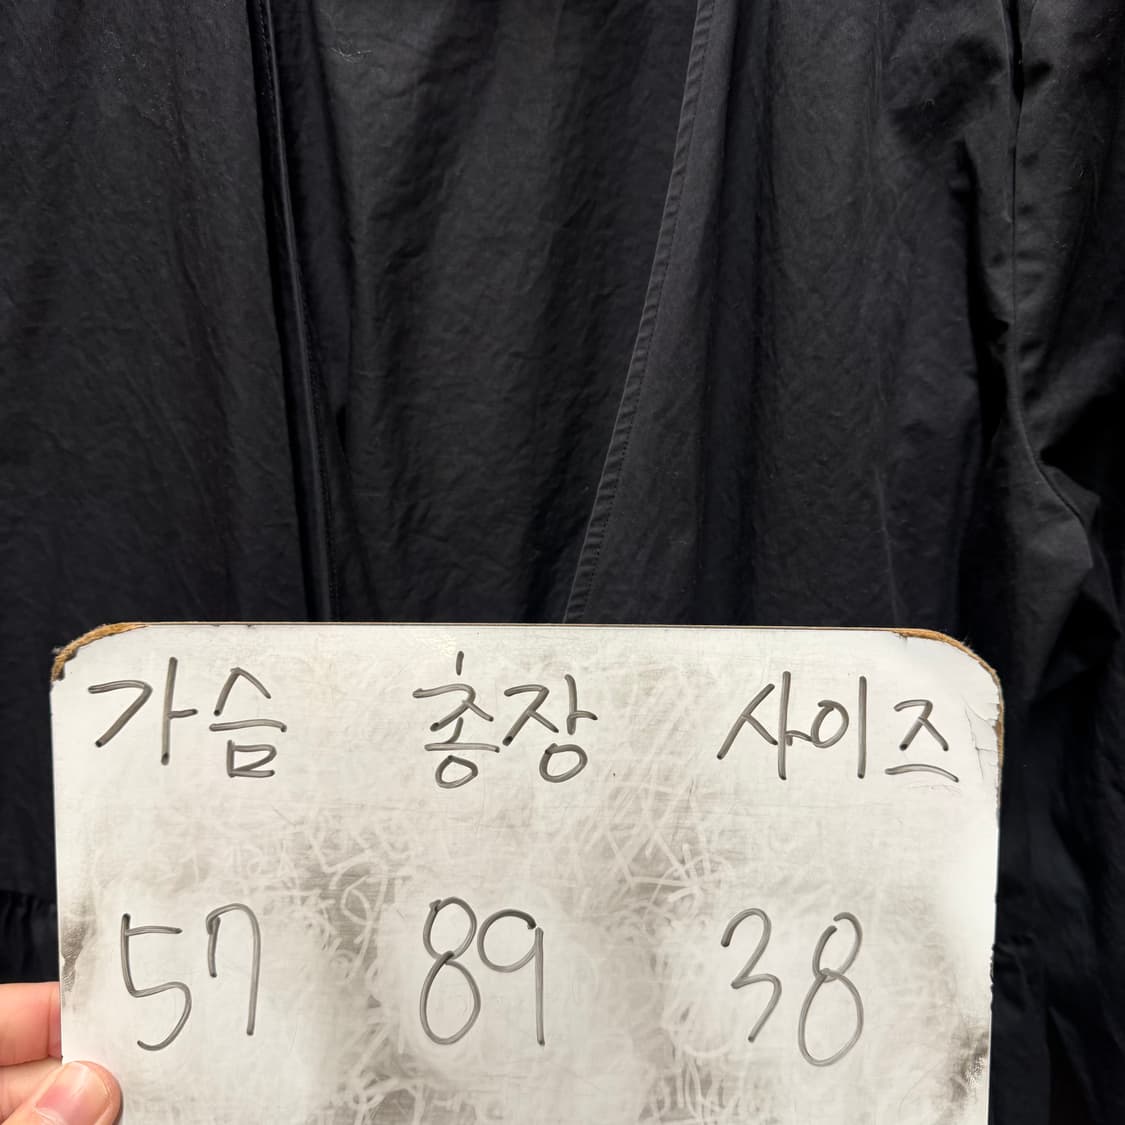 가슴 총장 사이즈
57 89 38